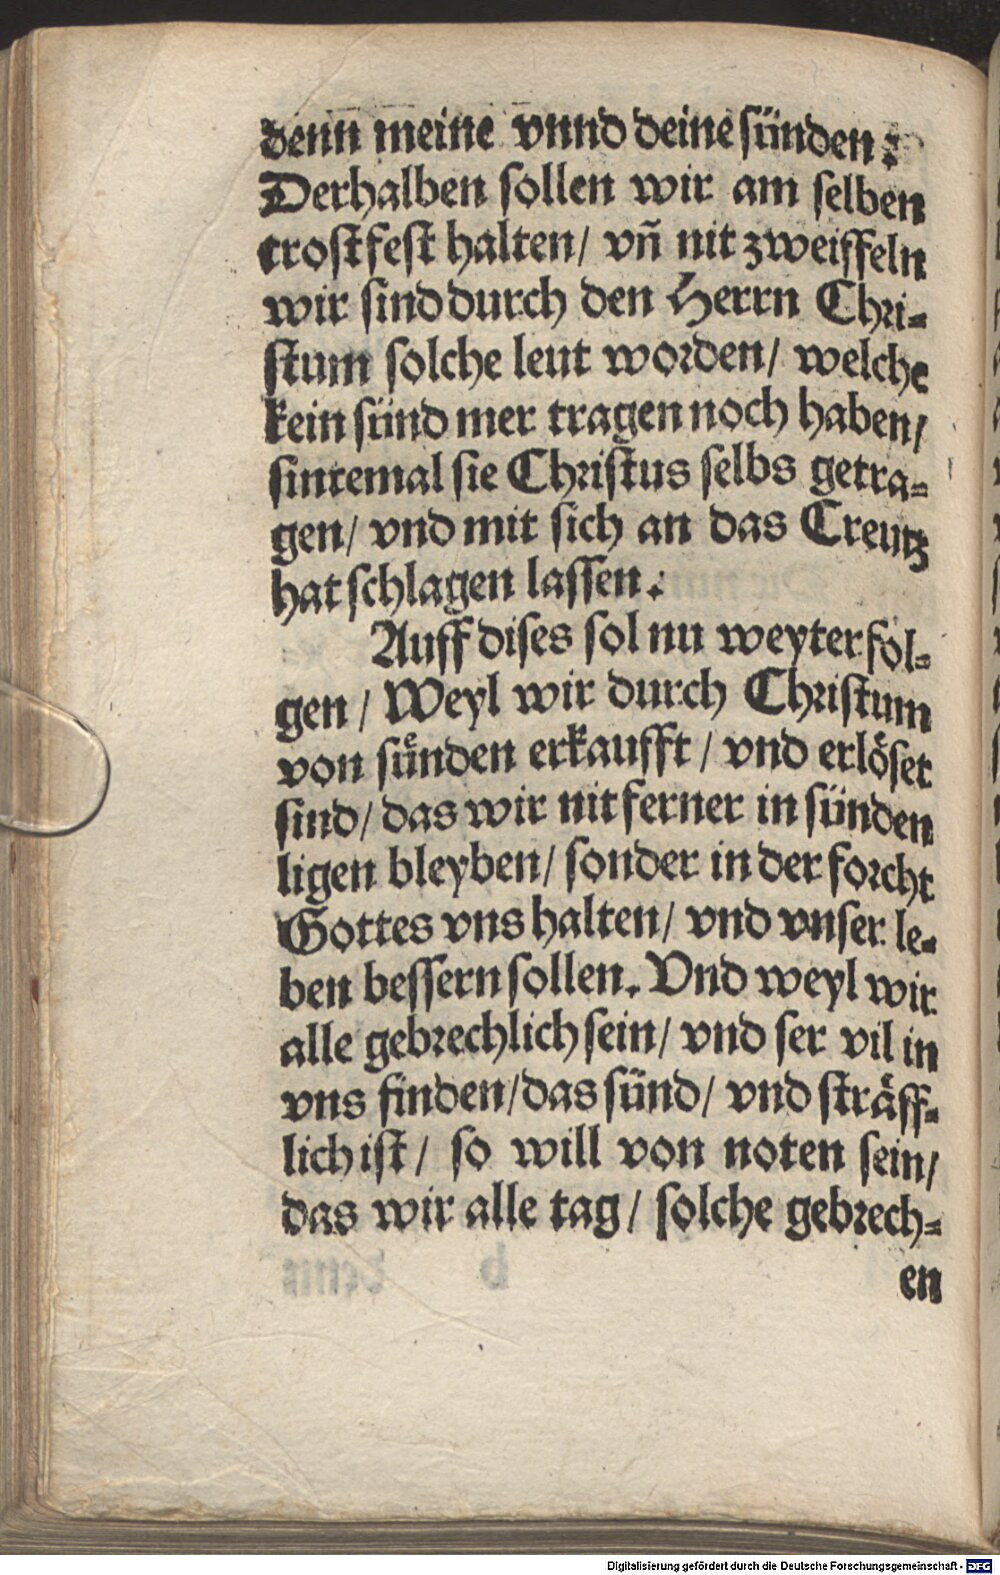 denn meine vnnd deine sünden?
Derhalben sollen wir am selben
trost fest halten/ vñ nit zweiffeln
wir sind durch den Herrn Chri-
stum solche leut worden/ welche
kein sünd mer tragen noch haben/
sintemal sie Christus selbs getra-
gen/ vnd mit sich an das Creutz
hat schlagen lassen.
Auff dises sol nu weyter fol-
gen/ Weyl wir durch Christum
von sünden erkaufft/ vnd erlöset
sind/ das wir nit ferner in sünden
ligen bleyben/ sonder in der forcht
Gottes vns halten/ vnd vnser le-
ben bessern sollen. Vnd weyl wir
alle gebrechlich sein/ vnd ser vil in
vns finden/ das sünd/ vnd sträff-
lich ist/ so will von noten sein/
das wir alle tag/ solche gebrech-
en
Digitalisierung gefördert durch die Deutsche Forschungsgemeinschaft - DFG